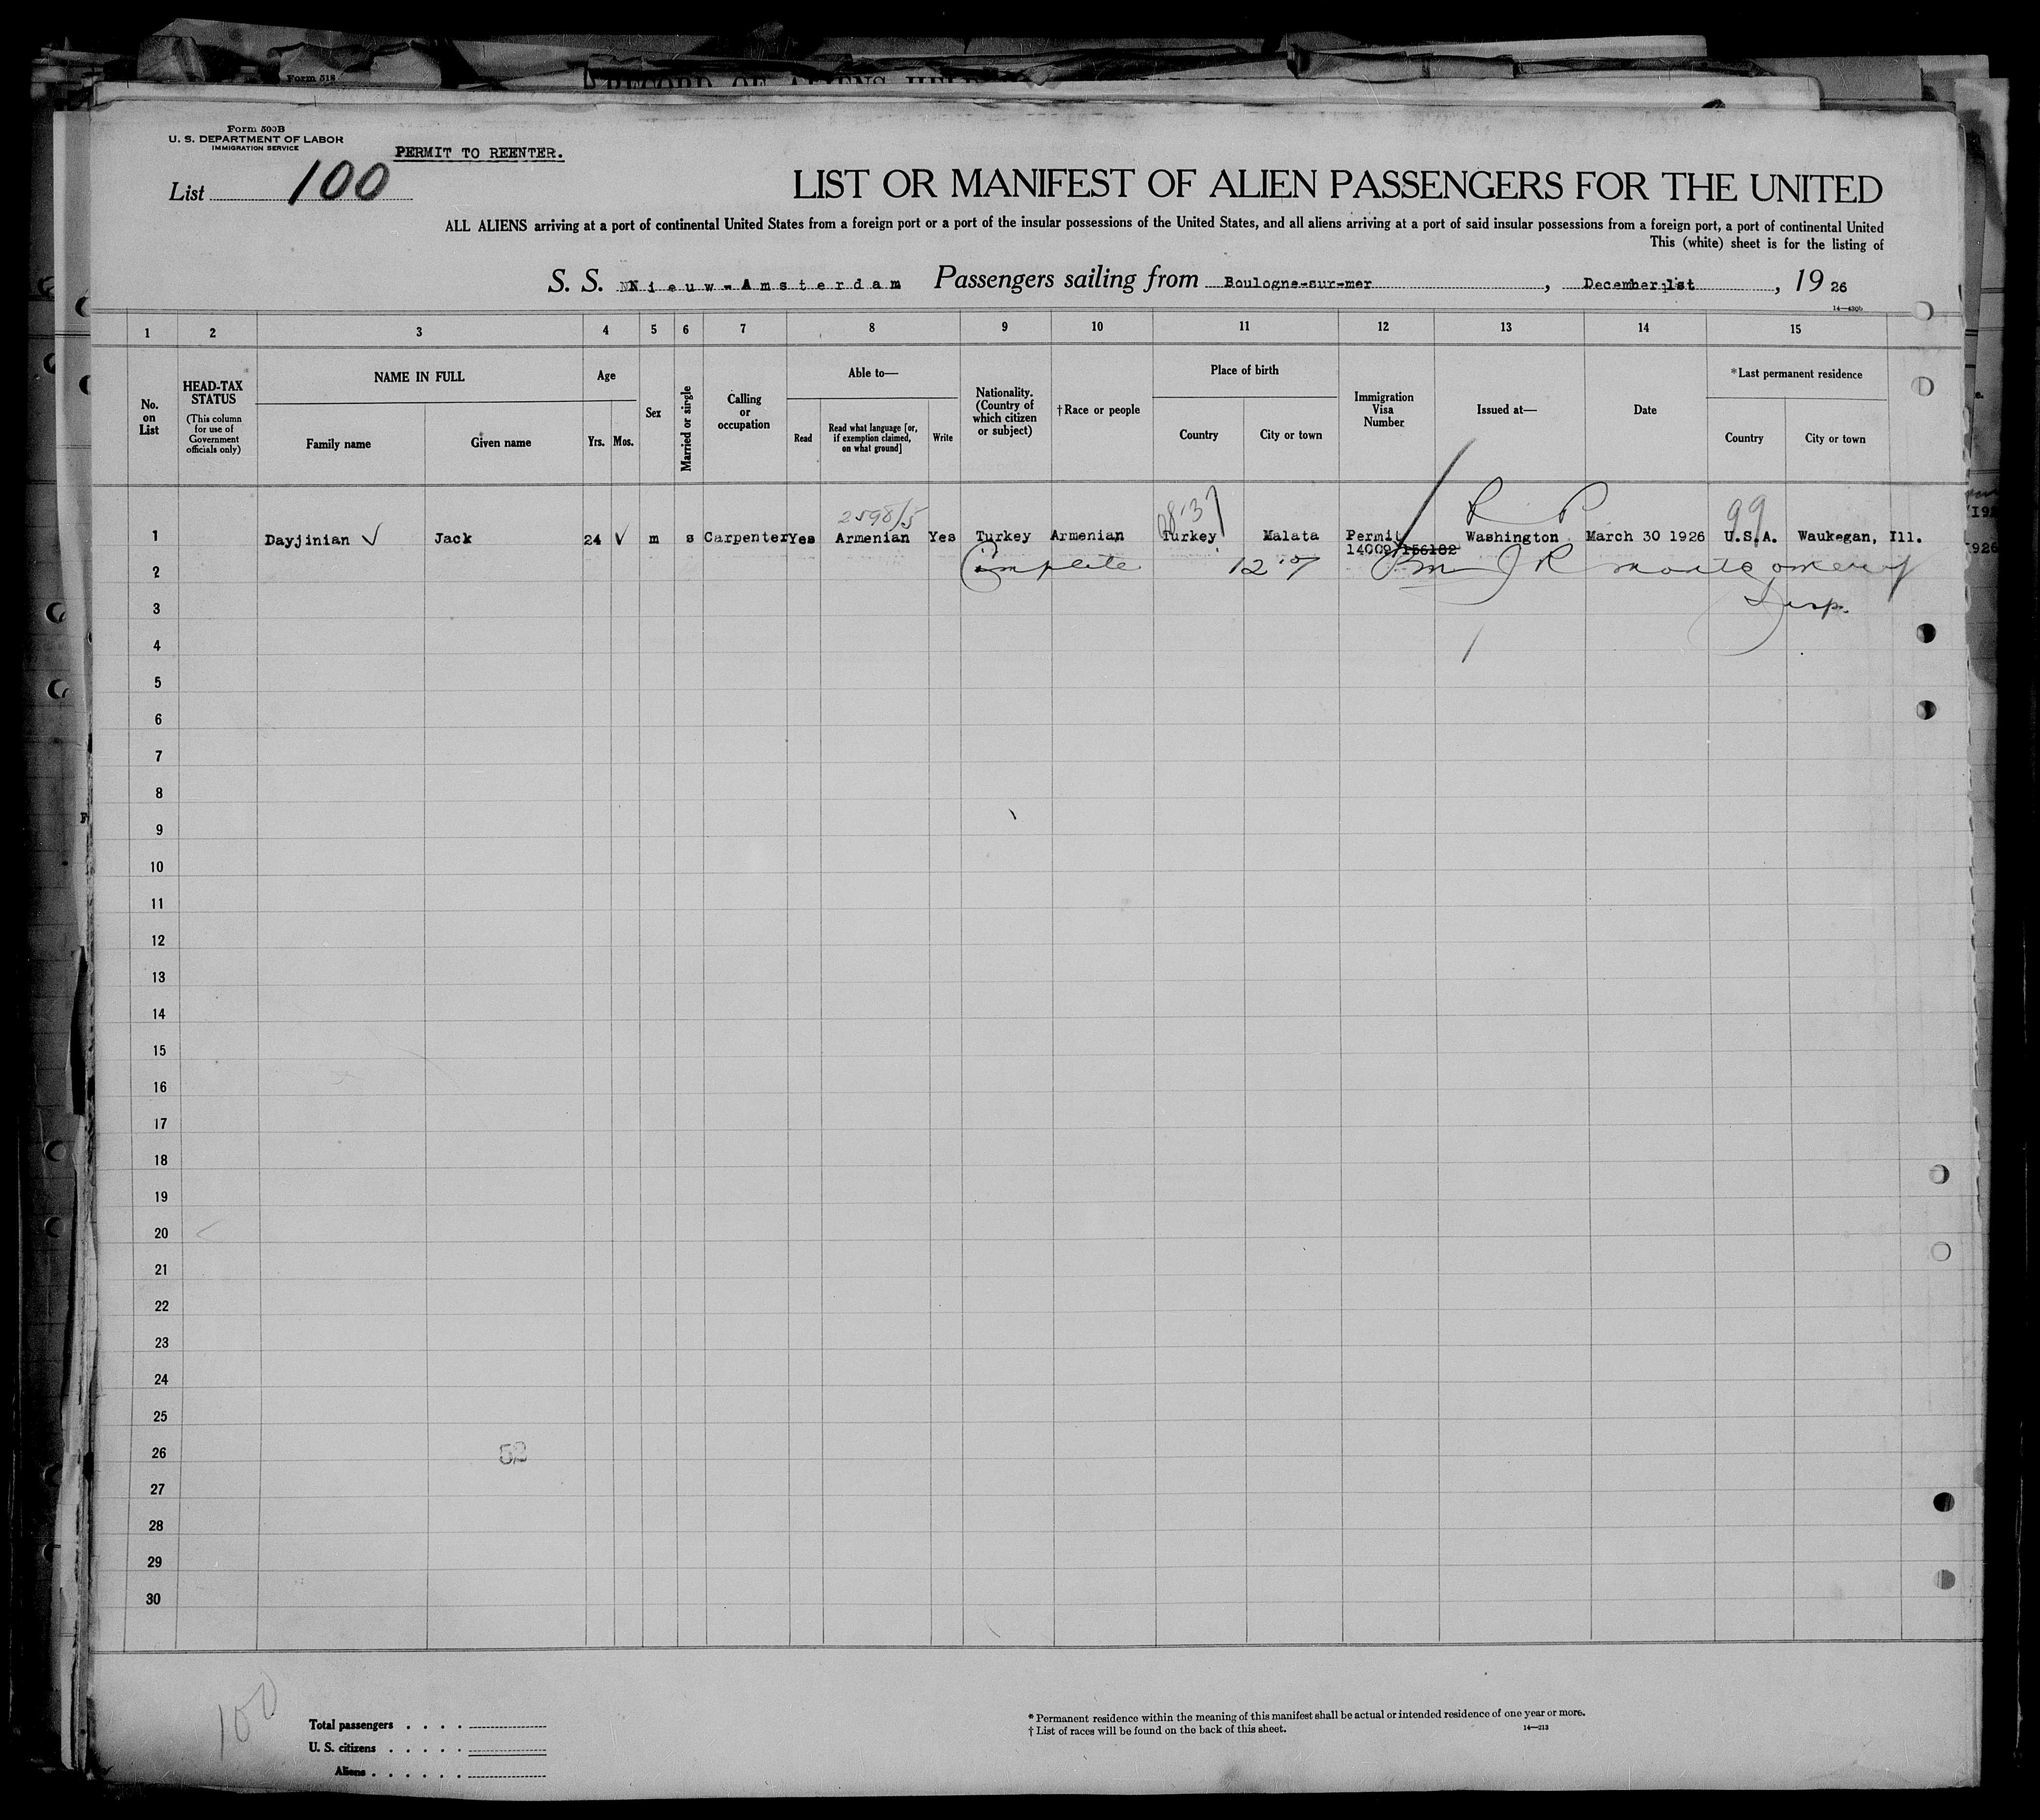 Form 518
RECORD OF ALIENS HELD
Form 500B
U. S. DEPARTMENT OF LABOR
IMMIGRATION SERVICE
PERMIT TO REENTER.
List 100
LIST OR MANIFEST OF ALIEN PASSENGERS FOR THE UNITED
ALL ALIENS arriving at a port of continental United States from a foreign port or a port of the insular possessions of the United States, and all aliens arriving at a port of said insular possessions from a foreign port, a port of continental United
This (white) sheet is for the listing of
S. S. Nieuw-Amsterdam Passengers sailing from Boulogne-sur-mer, December 1st, 1926
1 2 3 4 5 6 7 8 9 10 11 12 13 14 15
No. on List
HEAD-TAX STATUS
(This column for use of Government officials only)
NAME IN FULL
Family name Given name
Age
Yrs. Mos.
Sex
Married or single
Calling or occupation
Able to—
Read
Read what language [or, if exemption claimed, on what ground]
Write
Nationality. (Country of which citizen or subject)
†Race or people
Place of birth
Country City or town
Immigration Visa Number
Issued at—
Date
*Last permanent residence
Country City or town
2598/5 R P 99
1 Dayjinian Jack 24 m s Carpenter Yes Armenian Yes Turkey Armenian Turkey Malata Permit Washington March 30 1926 U.S.A. Waukegan, Ill.
14009/156182
2 Complete J R Montgomery
3 Insp.
4
5
6
7
8
9
10
11
12
13
14
15
16
17
18
19
20
21
22
23
24
25
26 52
27
28
29
30
100
Total passengers
U. S. citizens
Aliens
* Permanent residence within the meaning of this manifest shall be actual or intended residence of one year or more.
† List of races will be found on the back of this sheet.
14—213